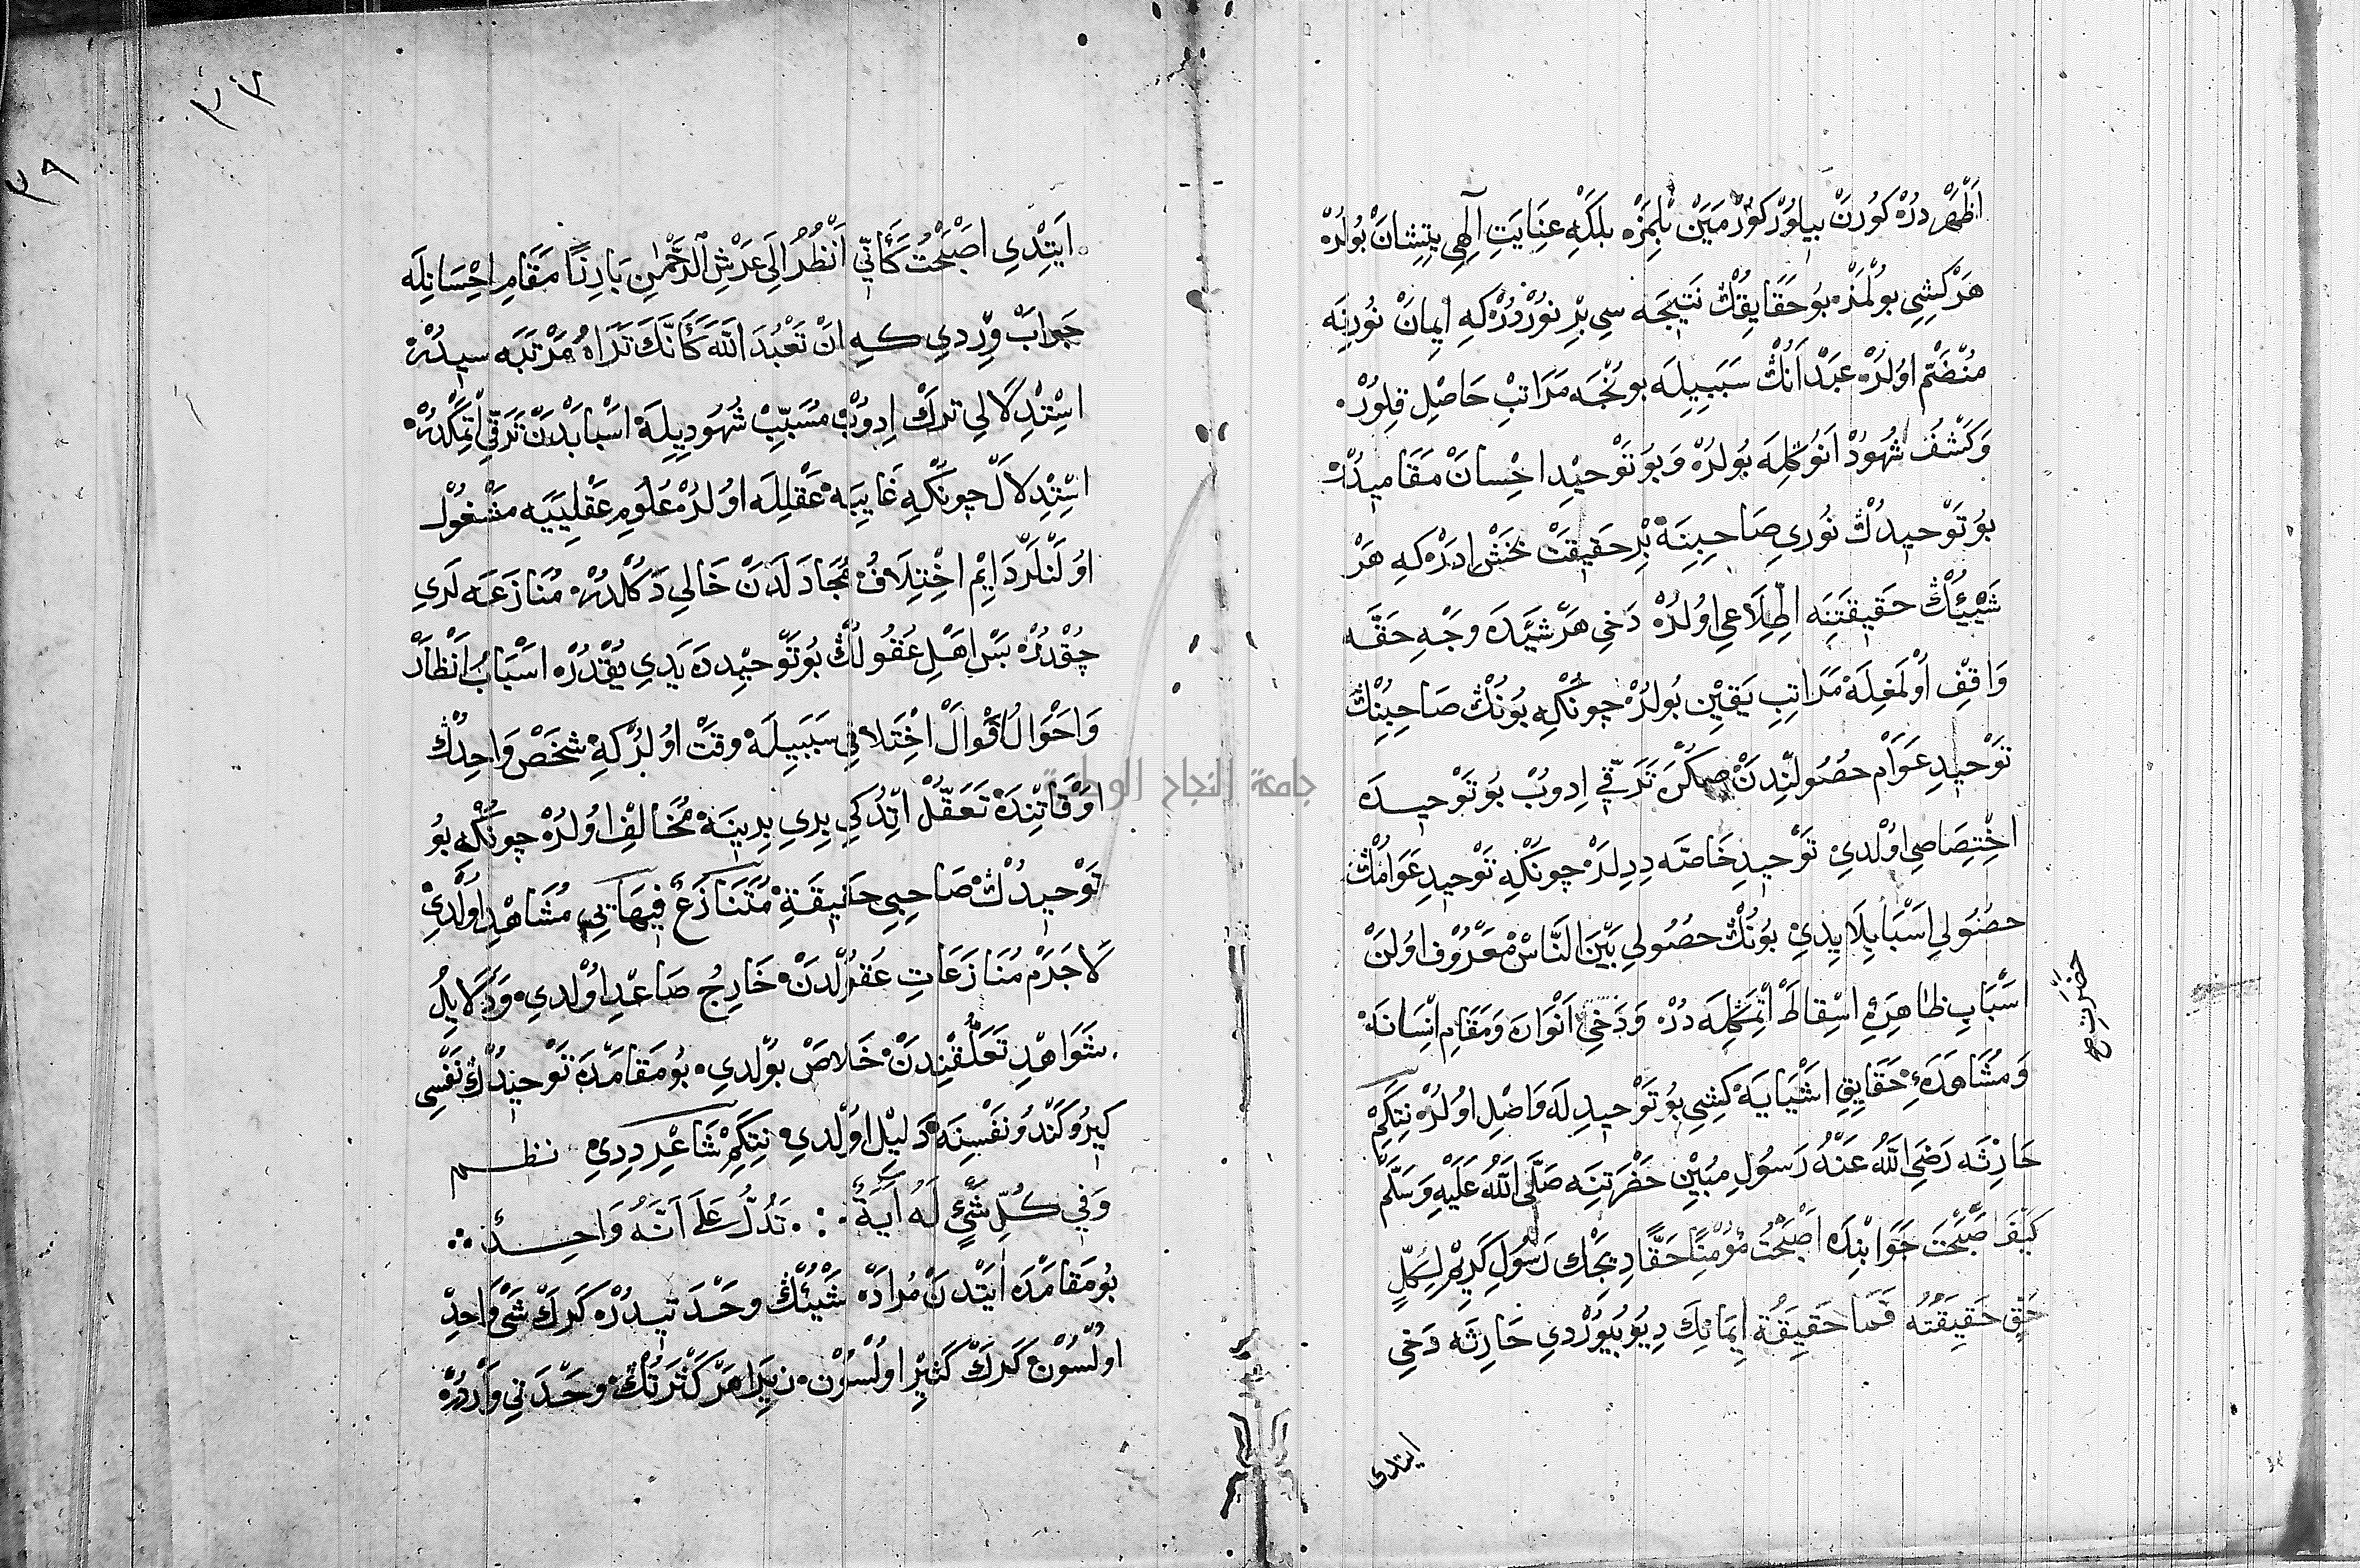 اَظْهَرْدُرْ كَوُرَنْ بِيلوُرْ كَوُرْمَيَنْ بِلْمَزْ بلكَه عِنَايَتِ آلٰهِي يتِيشَانْ بُولُرْ
هَرْكِشِي بوُلْمَزْ بُو حَقَايِقُڭْ نَتِيجَه سِي بْرِ نوُرْدُرْ كِه اِيمَانْ نُورِنَه
مُنْضَمّ اوُلُرْ عَبْدْ اَنُڭْ سَبَبِيلَه بونْجَه مَرَاتِبْ حَاصْلِ قِلوُرْ
وَكَشْفُ شُهُودْ اَنُوڭِلَه بُولُرْ وَبُو تَوْحِيْدِ احْسَانْ مَقَامِيدُرْ
بُو تَوْحِيدُڭْ نُورِي صَاحِبِنَه بْرِ حَقِيقَتْ بَخْشْ اِدَرْ كِه هَرْ
شَيْئُڭْ حَقِيقَتِنَه اِطِّلَاعِي اوُلُرْ دَخِي هَرْ شَيْئَدَه وَجْهِ حَقَّه
وَاقِفْ اوُلْمَغِلَه مَرَاتِبِ يَقِيْنِ بُولُرْ چُونْكِه بُونُڭْ صَاحِبِنُڭْ
تَوْحِيدِ عَوَامْ حُصُولِنْدَنْ صڭْرَه تَرَقِّي اِدوُبْ بُو تَوْحِيدَه
اخْتِصَاصِي اوُلْدِي تَوْحِيدِ خَاصَّه دِدِلَرْ چُونْكِه تَوْحِيدِ عَوَامُڭْ
حصُولِي اَسْبَابِلَا يِدِي بُونُڭْ حصُولِي بَيْنَ النَّاسْ مَعْرُوفْ اوُلَنْ
اسْبَابِ ظَاهِرَه‌ءِ اسْقَاطْ اتْمَڭِلَه دُرْ وَدَخِي اَنْوَارَه وَمَقَامِ انْسَانَه
وَمُشَاهَدَه‌ءِ حَقَايِقِ اشْيَايَه كِشِي بُو تَوْحِيدِلَه وَاصْلِ اوُلُرْ نِتَكِمْ
حضرت صح
حَارِثَه رَضِيَ اللّٰهُ عَنْهُ رَسُولِ مُبِيْنْ حَضْرَتِنَه صَلَّى اللّٰهُ عَلَيْهِ وَسَلَّمَ
كَيْفَ اَصْبَحْتَ جَوَابْنِدَه اَصْبَحْتُ مُؤْمِنًا حَقًّا دِيجَڭْ رَسُولِ كَرِيمْ لِكُلِّ
حَقٍّ حَقِيقَةٌ فَمَا حَقِيقَةُ اِيمَانِكَ دِيُو بُيُورْدِي حَارِثَه دَخِي
ايتدى
٣٣
٣٩
ايَتِدْيِ اصْبَحْتُ كَأَنِّي اَنْظُرُ اِلَى عَرْشِ الرَّحْمٰنِ بَارِزًا مَقَامِ احْسَانِلَه
جَوَابْ وِرْدِي كِهِ اَنْ تَعْبُدَ اللّٰهَ كَأَنَّكَ تَرَاهُ مَرْتَبَه سِيدُرْ
اسْتِدْلَالِي تركْ اِدوُبْ مُسَبِّبْ شُهُودِيلَه اسْبَابْدَنْ تَرَقِّي اتْمَكْدُرْ
اسْتِدْلَالْ چونْكِه غَايِبَه عَقْلِلَه اوُلُرْ عُلُومِ عَقْلِيَيَه مَشْغُولْ
اوُلَنْلَرْ دَايِمْ اخْتِلَافُ مُجَادَلَدَنْ خَالِي دَكُلْدُرْ مُنَازَعَه لَرِي
چُوْقْدُرْ بَسْ اهْلِ عُقُولُڭْ بُو تَوْحِيْدِدَه يَدِي يُوْقْدُرْ اسْبَابُ اَنْظَارْ
وَاحْوَالُ اقْوَالْ اخْتِلَافِي سَبَبِيلَه وقتْ اوُلُرْ كِه شَخْصْ وَاحِدُڭْ
اوْقَاتِنْدَه تَعَقُّلْ اتِّدُكِي بِرِي بِرِينَه مُخَالِفْ اوُلُرْ چونْكِه بُو
تَوْحِيدُڭْ صَاحِبِي حَقِيقَةِ مُتَنَازَعٌ فِيهَا يِي مُشَاهِدْ اوُلْدِي
لَاجَرَمْ مُنَازَعَاتِ عُقُولْدَنْ خَارِجُ صَاعْدِ اوُلْدِي وَدَلَايِلُ
شَوَاهِدِ تَعَلُّقِنْدَنْ خَلَاصْ بوُلْدِي بُو مَقَامْدَه تَوْحِيدُڭْ نَفْسِي
كِيرُو كَنْدُو نَفْسِنَه دَلِيْلْ اوُلْدِي نِتَكِمْ شَاعِرْ دِدِي نظم
وَفِي كُلِّ شَيْءٍ لَهُ آيَةٌ تَدُلُّ عَلَى اَنَّهُ وَاحِدٌ
بُو مَقَامْدَه اٰيَتْدَنْ مُرَادْ شَيْئُڭْ وَحْدَتِيدُرْ كَرَكْ شَيْ وَاحِدْ
اوُلْسُوْنْ كَرَكْ كَثِيرْ اوُلْسُوْنْ زِيرَا هَرْ كَثْرَتُڭْ وَحْدَتِي وَارْدُرْ